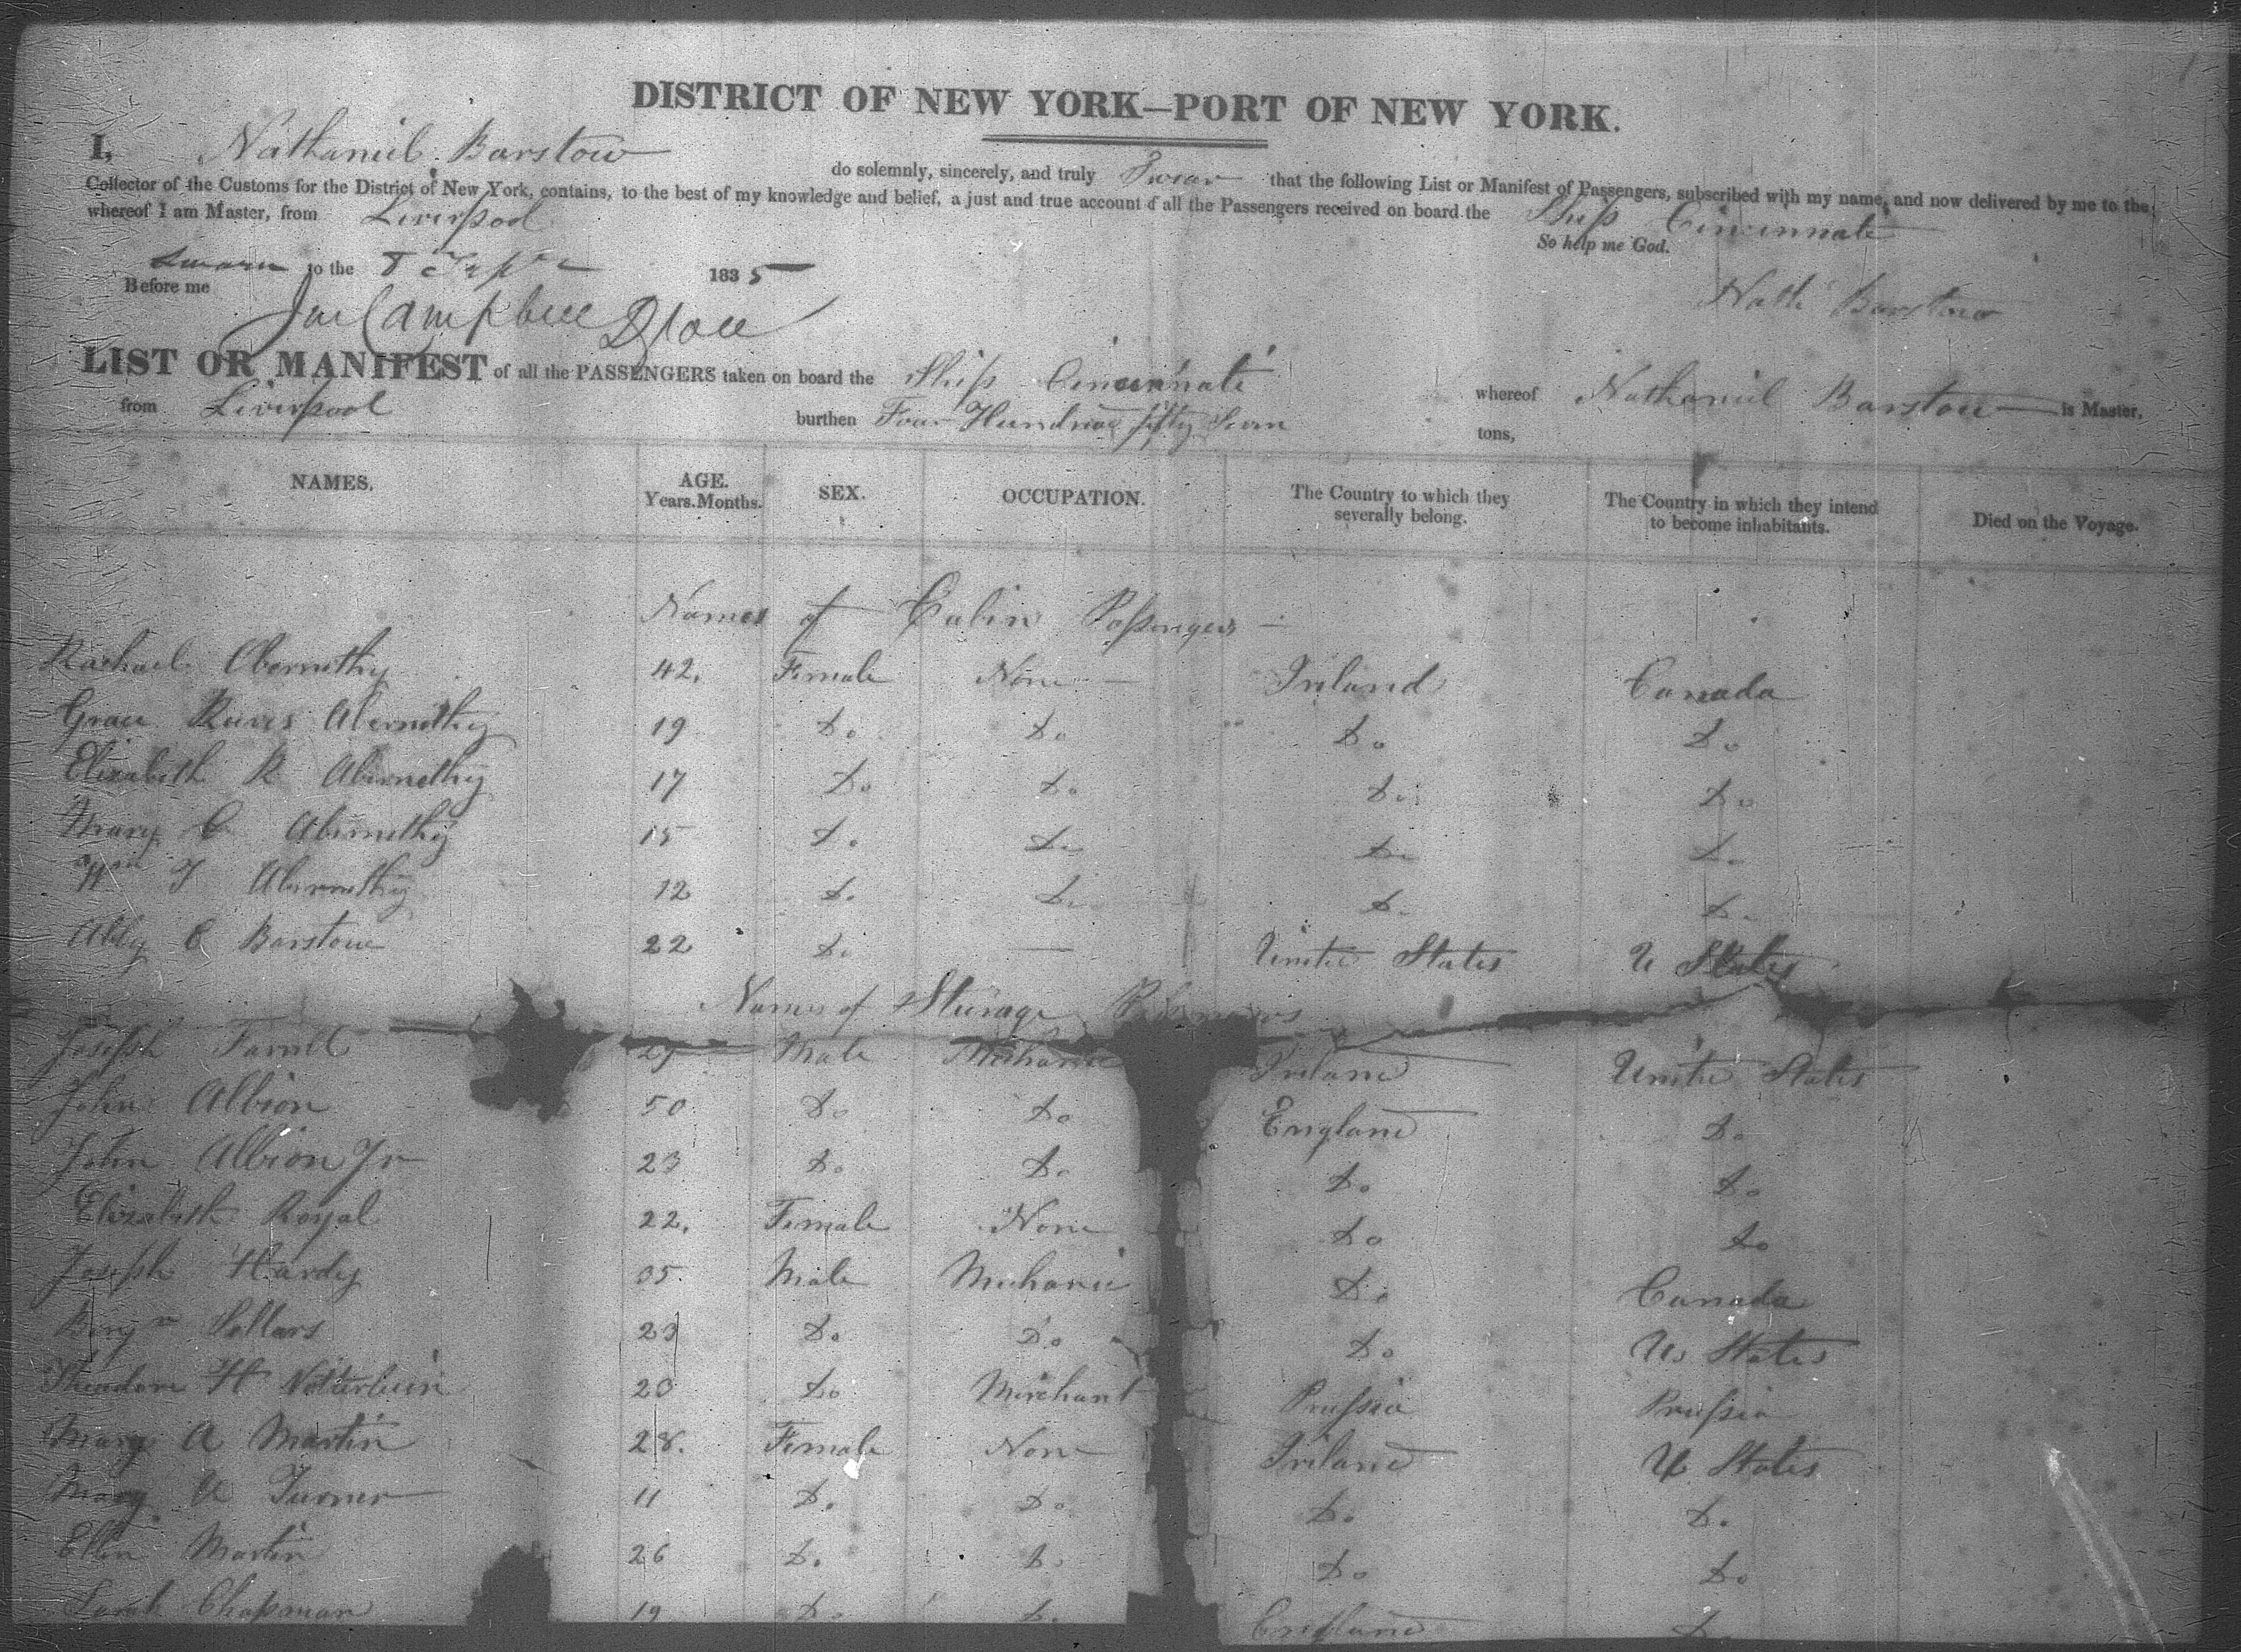 DISTRICT OF NEW YORK—PORT OF NEW YORK.
I, Nathaniel Barstow do solemnly, sincerely, and truly Swear that the following List or Manifest of Passengers, subscribed with my name, and now delivered by me to the
Collector of the Customs for the District of New York, contains, to the best of my knowledge and belief, a just and true account of all the Passengers received on board the Ship Cincinnati
whereof I am Master, from Liverpool
So help me God.
Sworn to the 8 1835
Before me
Nathl Barstow
Campbell
LIST OR MANIFEST of all the PASSENGERS taken on board the Ship Cincinnati whereof Nathaniel Barstow is Master,
from Liverpool burthen Four Hundred fifty Seven tons,
NAMES. AGE. Years. Months. SEX. OCCUPATION. The Country to which they severally belong. The Country in which they intend to become inhabitants. Died on the Voyage.
Names of Cabin Passengers —
Rachael Abernethy 42. Female None — Ireland Canada
Grace Reeves Abernethy 19 Do Do Do Do
Elizabeth R Abernethy 17 Do Do Do Do
Mary C Abernethy 15 Do Do Do Do
Wm T Abernethy 12 Do Do Do Do
Abby C Barstow 22 Do — United States U States
Names of Steerage Passengers
Joseph Farrell Male Mechanic Ireland United States
John Albion 50 Do Do England Do
John Albion Jr 23 Do Do Do Do
Elizabeth Royal 22. Female None Do Do
Joseph Hardy 35 Male Mechanic Do Canada
Benjn Sellars 23 Do Do Do U. States
Theodore H 23 Do Merchant Prussia Prussia
Mary A Martin 28. Female None Ireland U States
Mary A Turner 11 Do Do Do Do
Ellen Martin 26 Do Do Do Do
Sarah Chapman 19 Do Do England Do